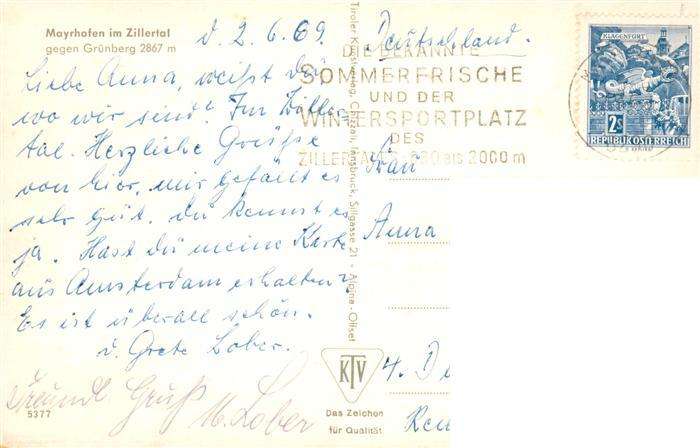 Mayrhofen im Zillertal
gegen Grünberg 2867 m
d. 2.6.69.
Liebe Anna, weißt Du,
wo wir sind? Im Ziller-
tal. Herzliche Grüße
von hier, mir gefällt es
sehr gut. du kennst es
ja. Hast du meine Karte
aus Amsterdam erhalten?
Es ist überall schön.
u. Grete Lober.
Freundl Gruß
M. Lober
5377
Tiroler Kunstverlag Chizzali, Innsbruck, Sillgasse 21 - Alpina-Offset
KTV
Das Zeichen
für Qualität
Deutschland.
DIE BEKANNTE
SOMMERFRISCHE
UND DER
WINTERSPORTPLATZ
DES
ZILLERTALES 630 BIS 2000 m
KLAGENFURT
2S
REPUBLIK ÖSTERREICH
Frau
Anna
4. D